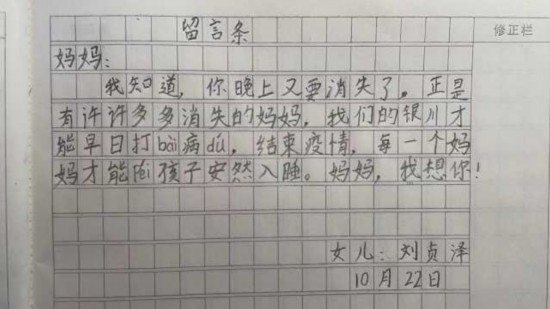 修正栏
留言条
妈妈：
我知道，你晚上又要消失了。正是
有许许多多消失的妈妈，我们的银川才
能早日打bài病dú，结束疫情，每一个妈
妈才能péi孩子安然入睡。妈妈，我想你！
女儿：刘贞泽
10月22日